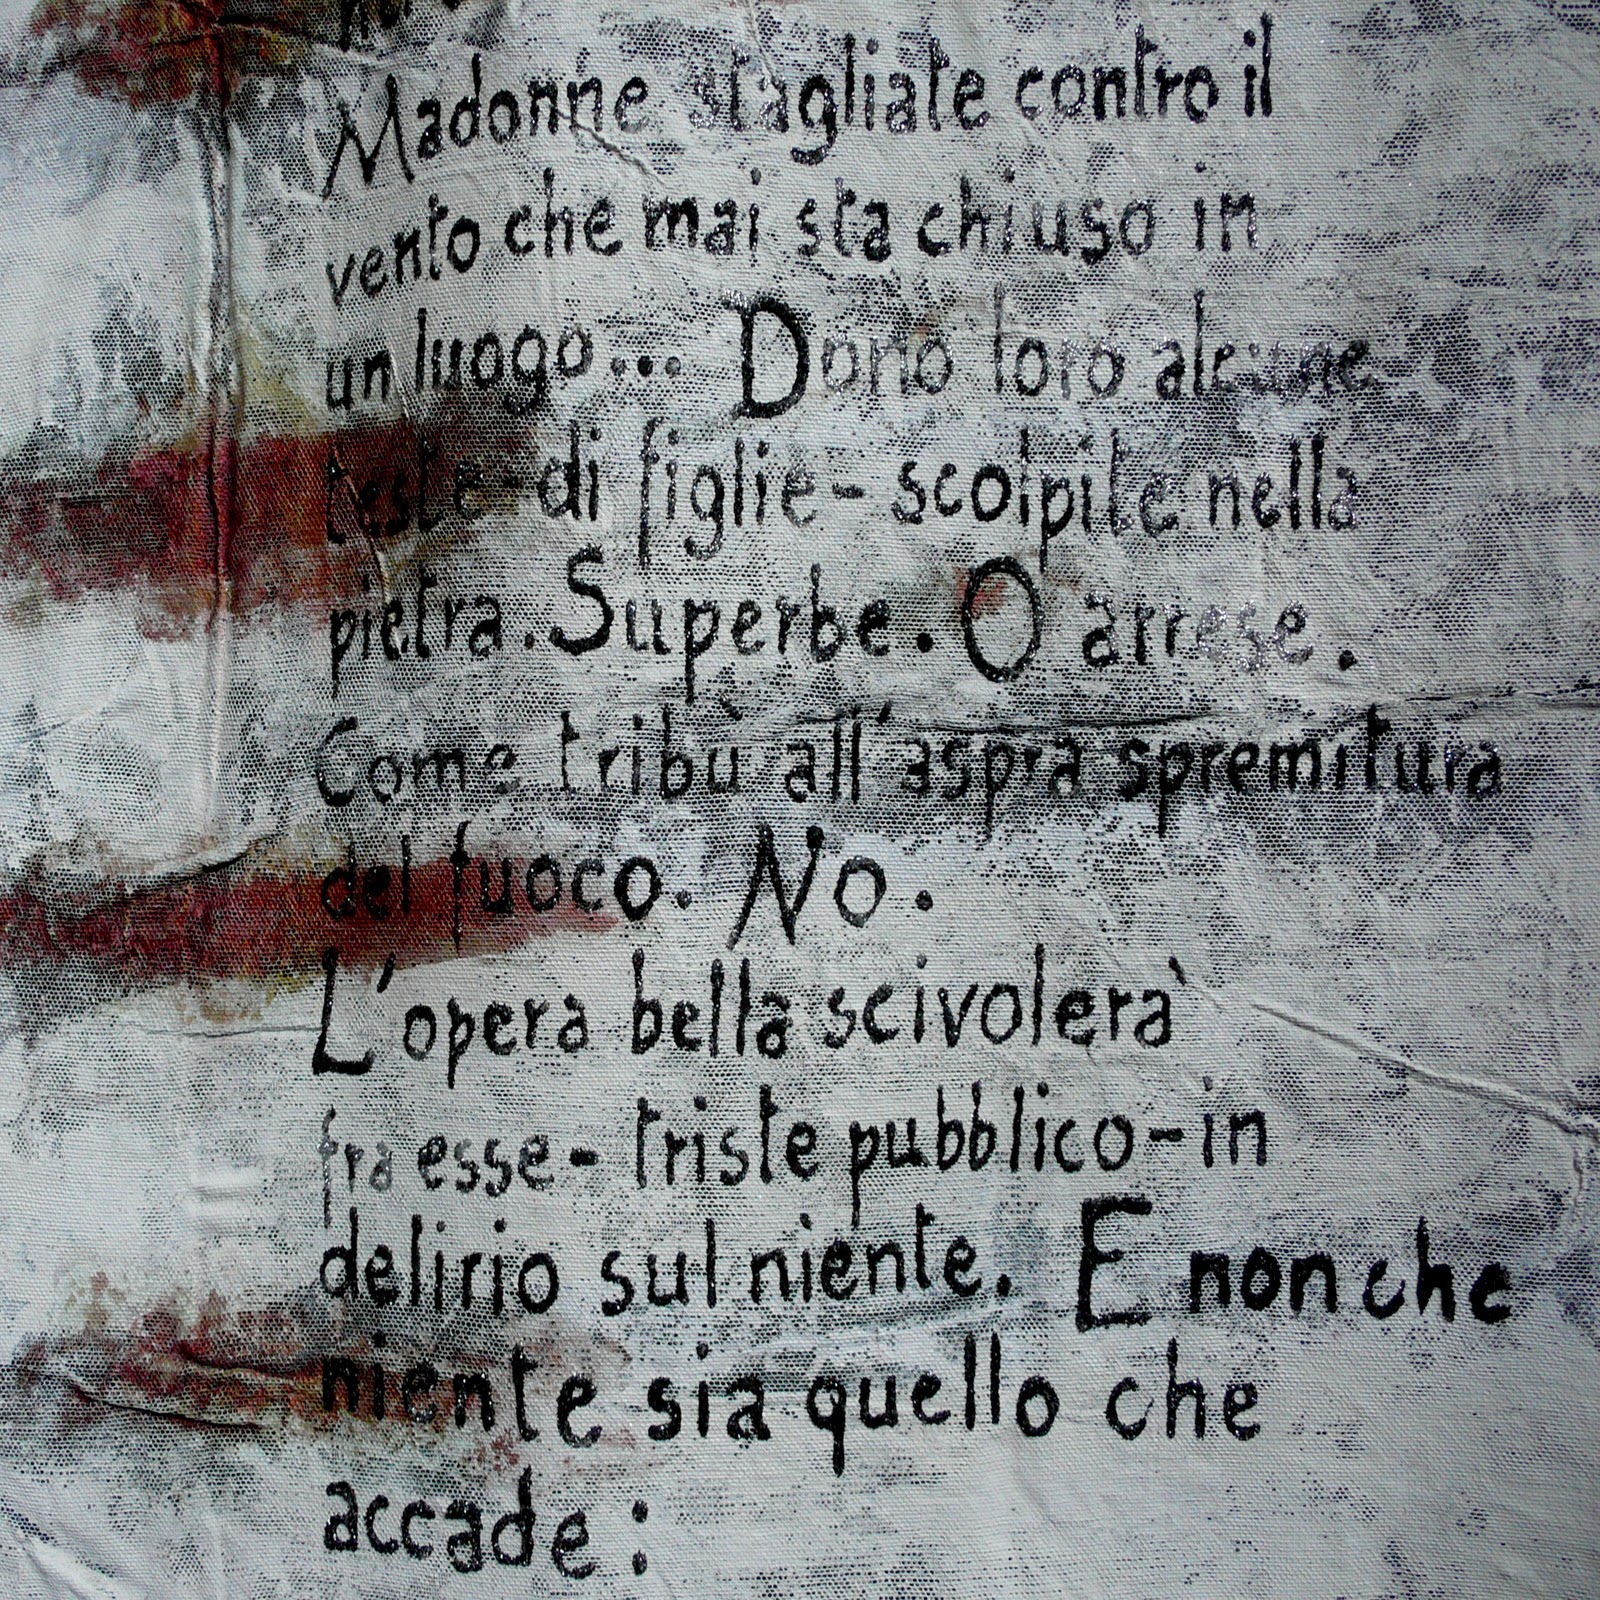 Madonne stagliate contro il
vento che mai sta chiuso in
un luogo... Dono loro alcune
teste - di figlie - scolpite nella
pietra. Superbe. O arrese.
Come tribù all'aspra spremitura
del fuoco. No.
L'opera bella scivolerà
fra esse - triste pubblico - in
delirio sul niente. E non che
niente sia quello che
accade: